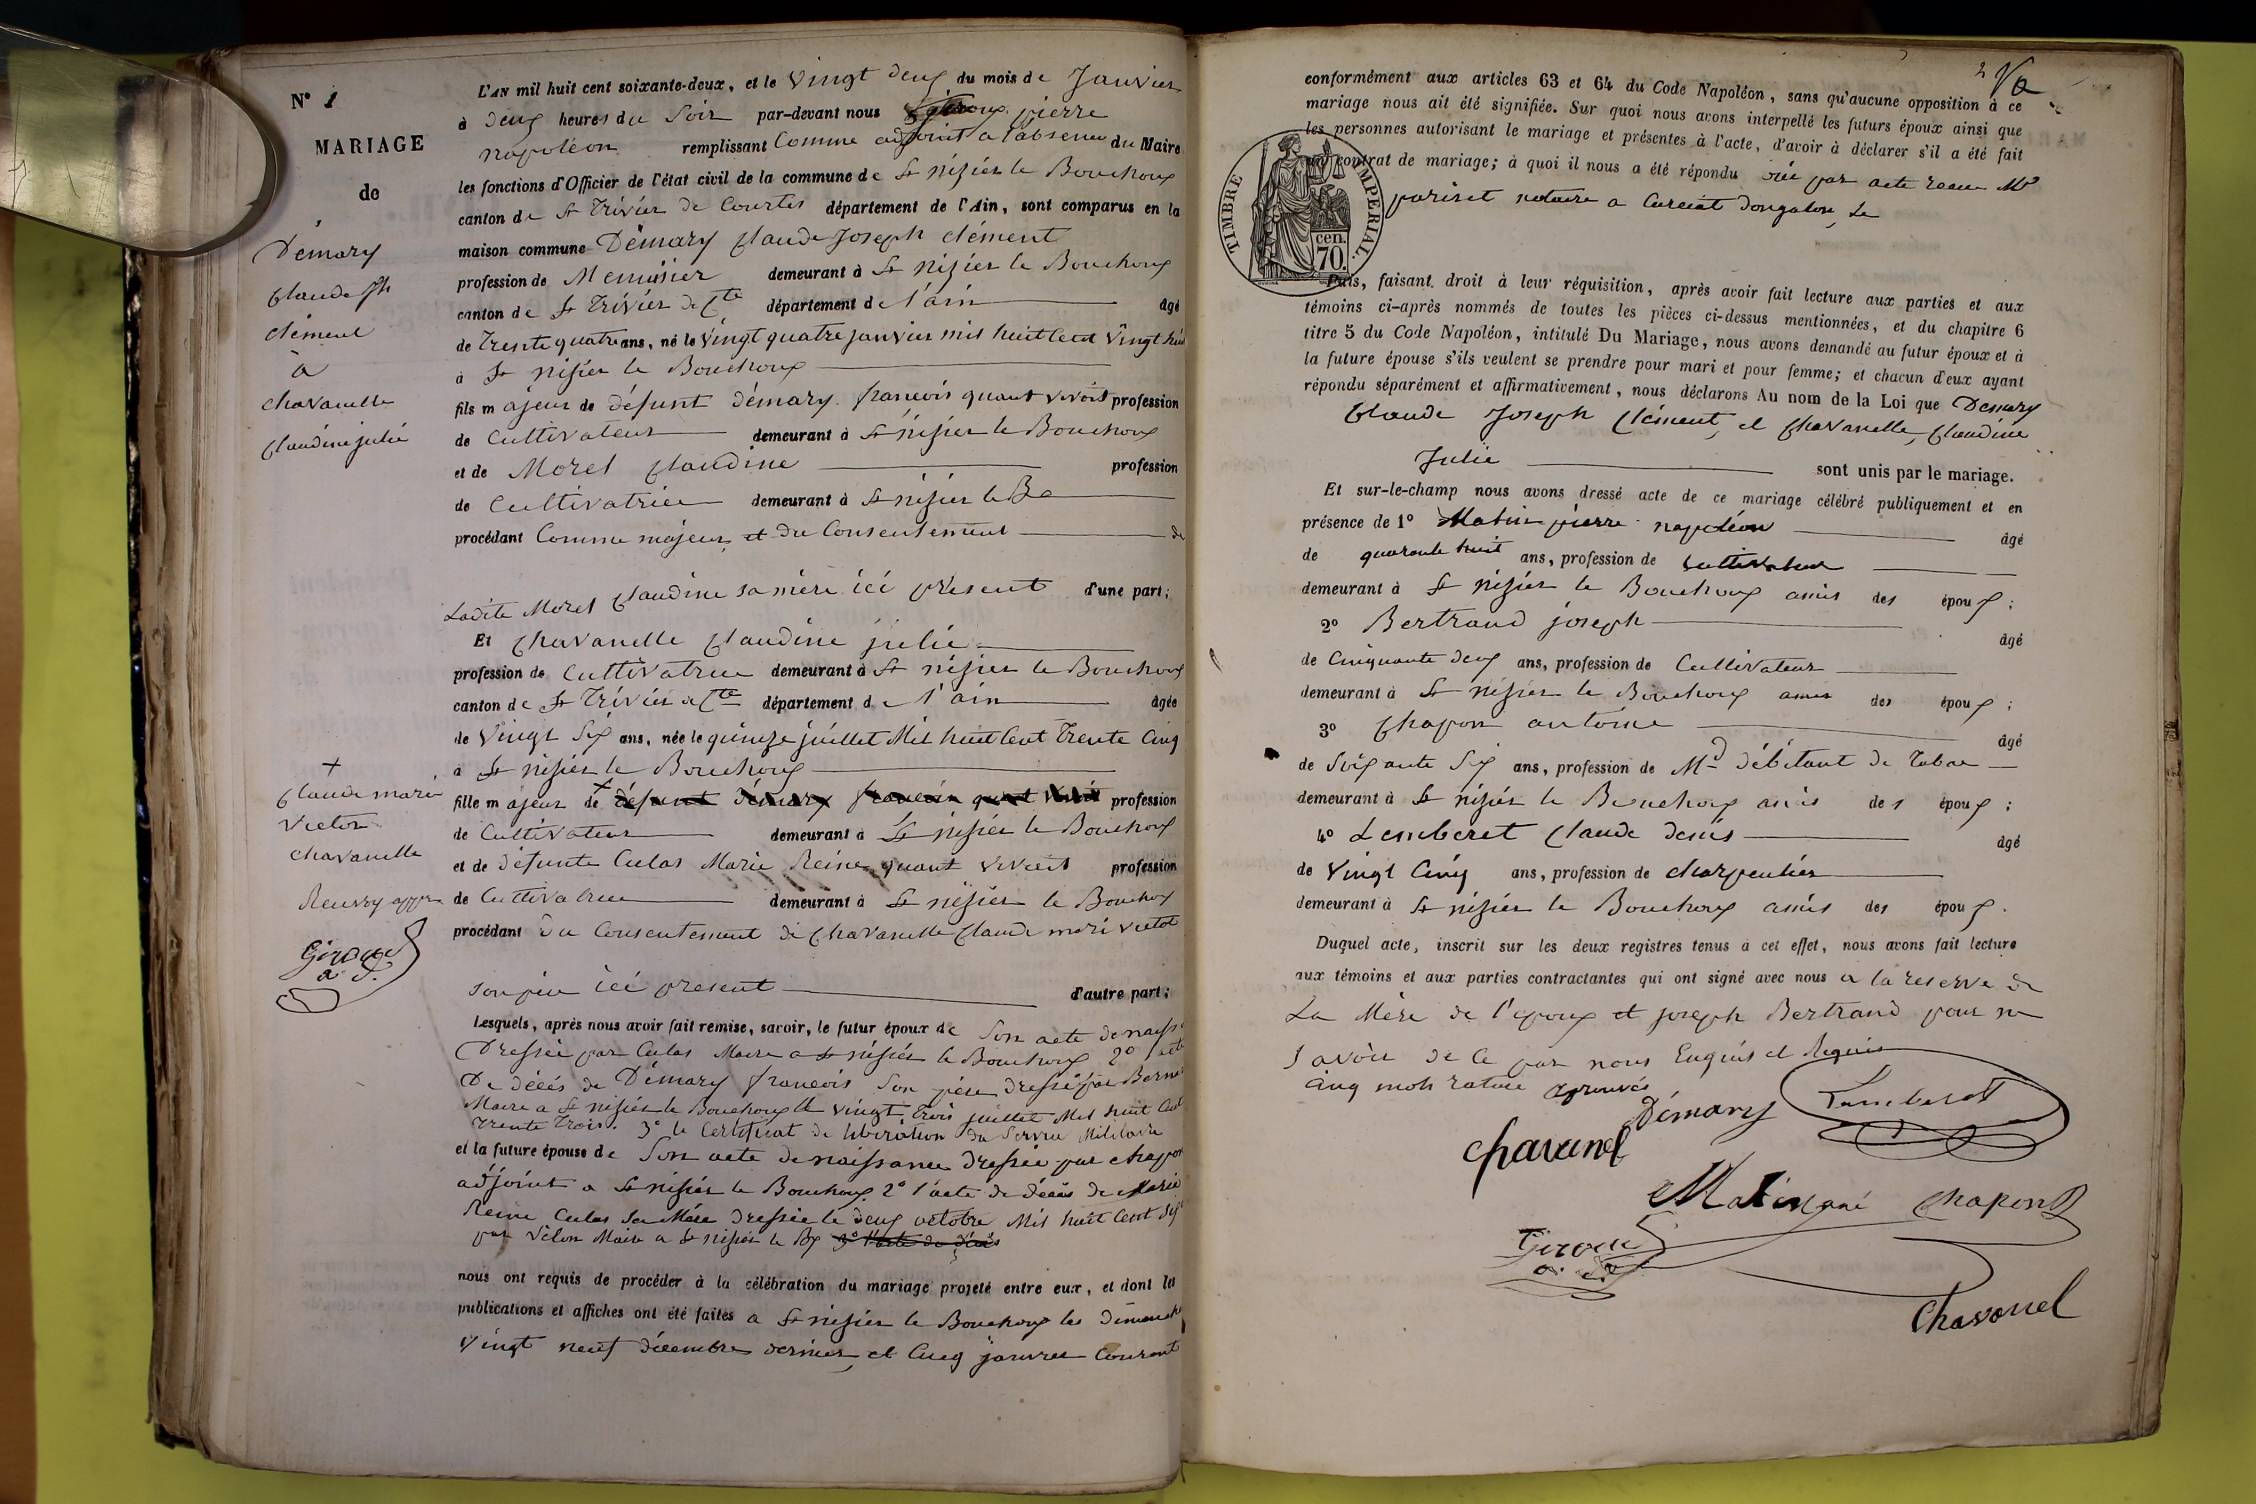 N° 1
MARIAGE
de
Démary
Claude Jh
clément
à
chavanelle
Claudine julie
L'AN mil huit cent soixante-deux, et le vingt deux du mois de Janvier
à deux heures du Soir par-devant nous pierre
napoléon remplissant Comme adjoint a l'absence du Maire
les fonctions d'Officier de l'état civil de la commune de St nizier le Bouchoux
canton de St Trivier de Courtes département de l'Ain, sont comparus en la
maison commune Démary Claude Joseph clément
profession de Menuisier demeurant à St Nizier le Bouchoux
canton de St Trivier de Cte département de l'ain âgé
de Trente quatre ans, né le vingt quatre janvier mil huit Cent vingt huit
à St nizier le Bouchoux
fils majeur de défunt démary françois quant vivoit profession
de Cultivateur demeurant à St nizier le Bouchoux
et de Morel Claudine profession
de Cultivatrice demeurant à St nizier le Bx
procédant Comme majeur et du Consentement de
Ladite Morel Claudine sa mère ici present d'une part;
Et Chavanelle Claudine julie
profession de Cultivatrice demeurant à St nizier le Bouchoux
canton de St Trivier de Cte département de l'ain âgée
de vingt Six ans, née le quinze juillet Mil huit Cent Trente Cinq
à St nizier le Bouchoux
+
Claude marie
Victor
chavanelle
Renvoy appr
Giroud
a. d.
fille majeur de + défunt démary francois quant vivoit profession
de Cultivateur demeurant à St nizier le Bouchoux
et de défunte Culas Marie Reine quant vivoit profession
de Cultivatrice demeurant à St nizier le Bouchoux
procédant du Consentement de Chavanelle Claude marie victor
son père ici present d'autre part;
Lesquels, après nous avoir fait remise, savoir, le futur époux de Son acte de naiss
Dressée par Culas Maire a St nizier le Bouchoux 2° l'acte
De décés de Démary francois Son père dressé par
Maire a St nizier le Bouchoux le vingt Trois juillet Mil huit Cent
Trente Trois. 3° le Certificat de libération du Service Militaire
et la future épouse de Son acte de naissance dressée par chapon
adjoint a St nizier le Bouchoux 2° l'acte de décès de Marie
Reine Culas Sa Mère dressée le deux octobre Mil huit Cent
par Maire a St nizier le Bx 3° l'acte de décès
nous ont requis de procéder à la célébration du mariage projeté entre eux, et dont les
publications et affiches ont été faites a St nizier le Bouchoux les dimanche
vingt neuf décembre dernier, et Cinq janvier Courant
conformément aux articles 63 et 64 du Code Napoléon, sans qu'aucune opposition à ce
mariage nous ait été signifiée. Sur quoi nous avons interpellé les futurs époux ainsi que
les personnes autorisant le mariage et présentes à l'acte, d'avoir à déclarer s'il a été fait
contrat de mariage; à quoi il nous a été répondu oui par acte recu Me
pariset notaire a Curciat dongalon, Le
TIMBRE IMPERIAL.
cen.
70.
Puis, faisant droit à leur réquisition, après avoir fait lecture aux parties et aux
témoins ci-après nommés de toutes les pièces ci-dessus mentionnées, et du chapitre 6
titre 5 du Code Napoléon, intitulé Du Mariage, nous avons demandé au futur époux et à
la future épouse s'ils veulent se prendre pour mari et pour femme; et chacun d'eux ayant
répondu séparément et affirmativement, nous déclarons Au nom de la Loi que Démary
Claude Joseph Clément, et Chavanelle, Claudine
Julie sont unis par le mariage.
Et sur-le-champ nous avons dressé acte de ce mariage célébré publiquement et en
présence de 1° Matin pierre napoléon âgé
de quarante huit ans, profession de Cultivateur
demeurant à St nizier le Bouchoux amis des époux;
2° Bertrand joseph âgé
de Cinquante deux ans, profession de Cultivateur
demeurant à St nizier le Bouchoux amis des époux;
3° Chapon antoine âgé
de Soixante Six ans, profession de Md débitant de Tabac
demeurant à St nizier le Bouchoux amis des époux;
4° Lemberet Claude denis âgé
de vingt Cinq ans, profession de charpentier
demeurant à St nizier le Bouchoux amis des époux.
Duquel acte, inscrit sur les deux registres tenus à cet effet, nous avons fait lecture
aux témoins et aux parties contractantes qui ont signé avec nous a la reserve de
La Mère de l'epoux et joseph Bertrand pour ne
savoir de Ce par nous Enquis et Requis
Cinq mots rature aprouvés
Démary Lamberet
chavanel
Matin Chapon
Giroud
Chavanel